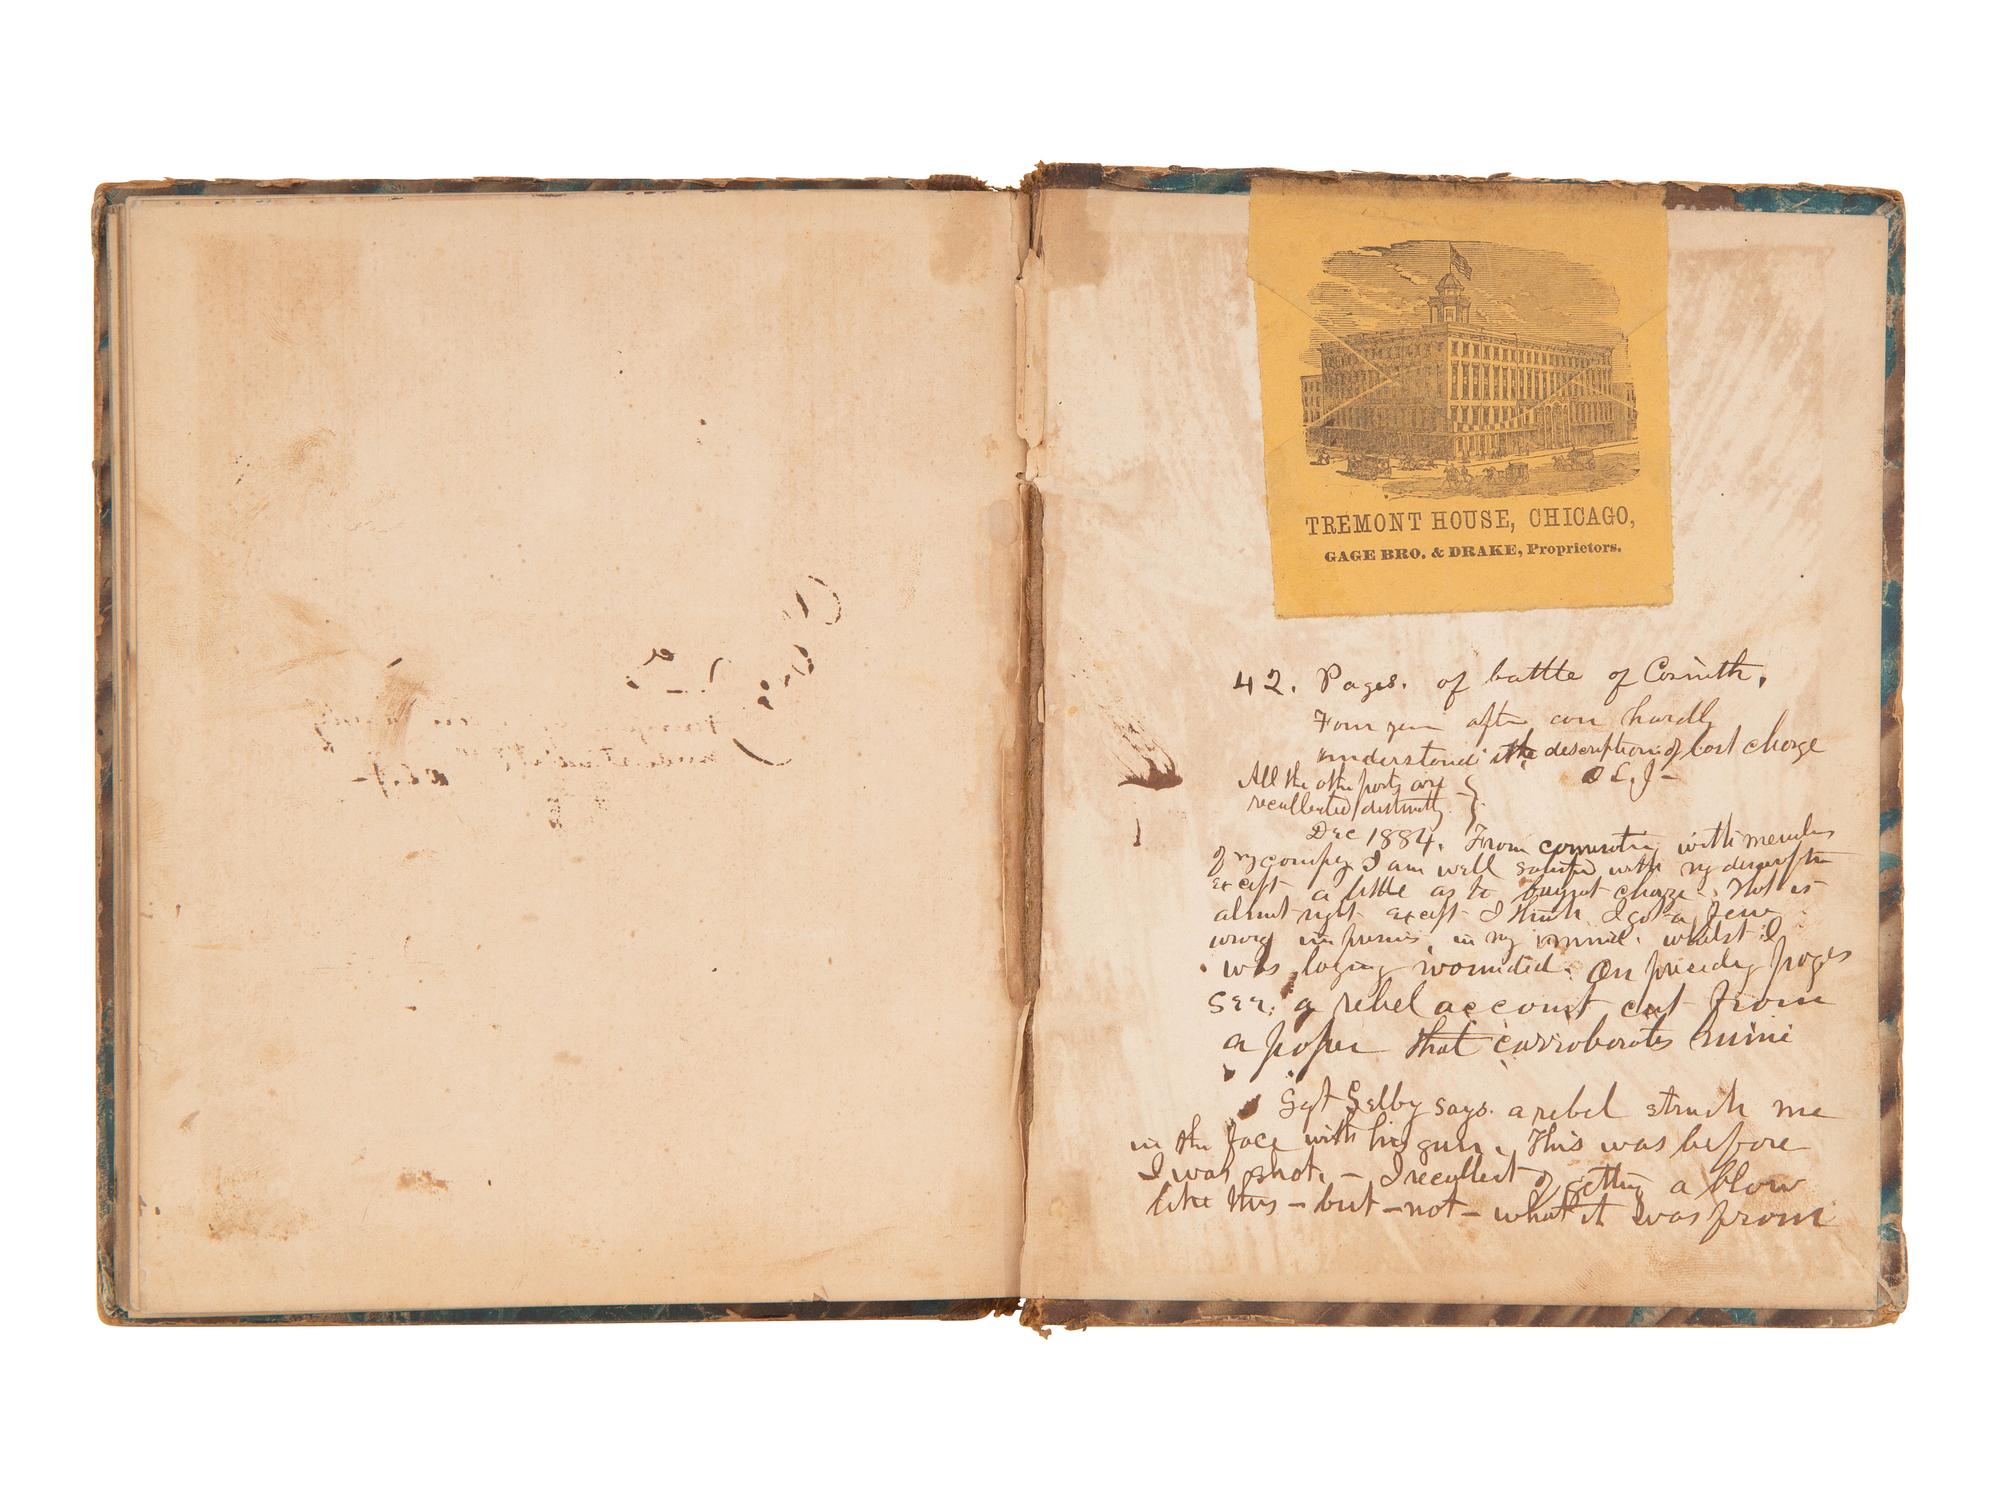 TREMONT HOUSE, CHICAGO,
GAGE BRO. & DRAKE, Proprietors.
42. Pages. of battle of Corinth.
Four years after can hardly
understand the description of last charge
O L. J -
All the other parts are
recollected distinctly. }
Dec 1884. From conversation with members
of my company I am well satisfied with my description
except a little as to bayonet charge. That is
almost right except I think I got a few
wrong impressions, in my mind. whilst I
was laying wounded. On preceding pages
see. a rebel account cut from
a paper that carroborates mine
Sgt Selby says. a rebel struck me
in the face with his gun. This was before
I was shot. - I recollect of getting a blow
like this - but - not - what it was from